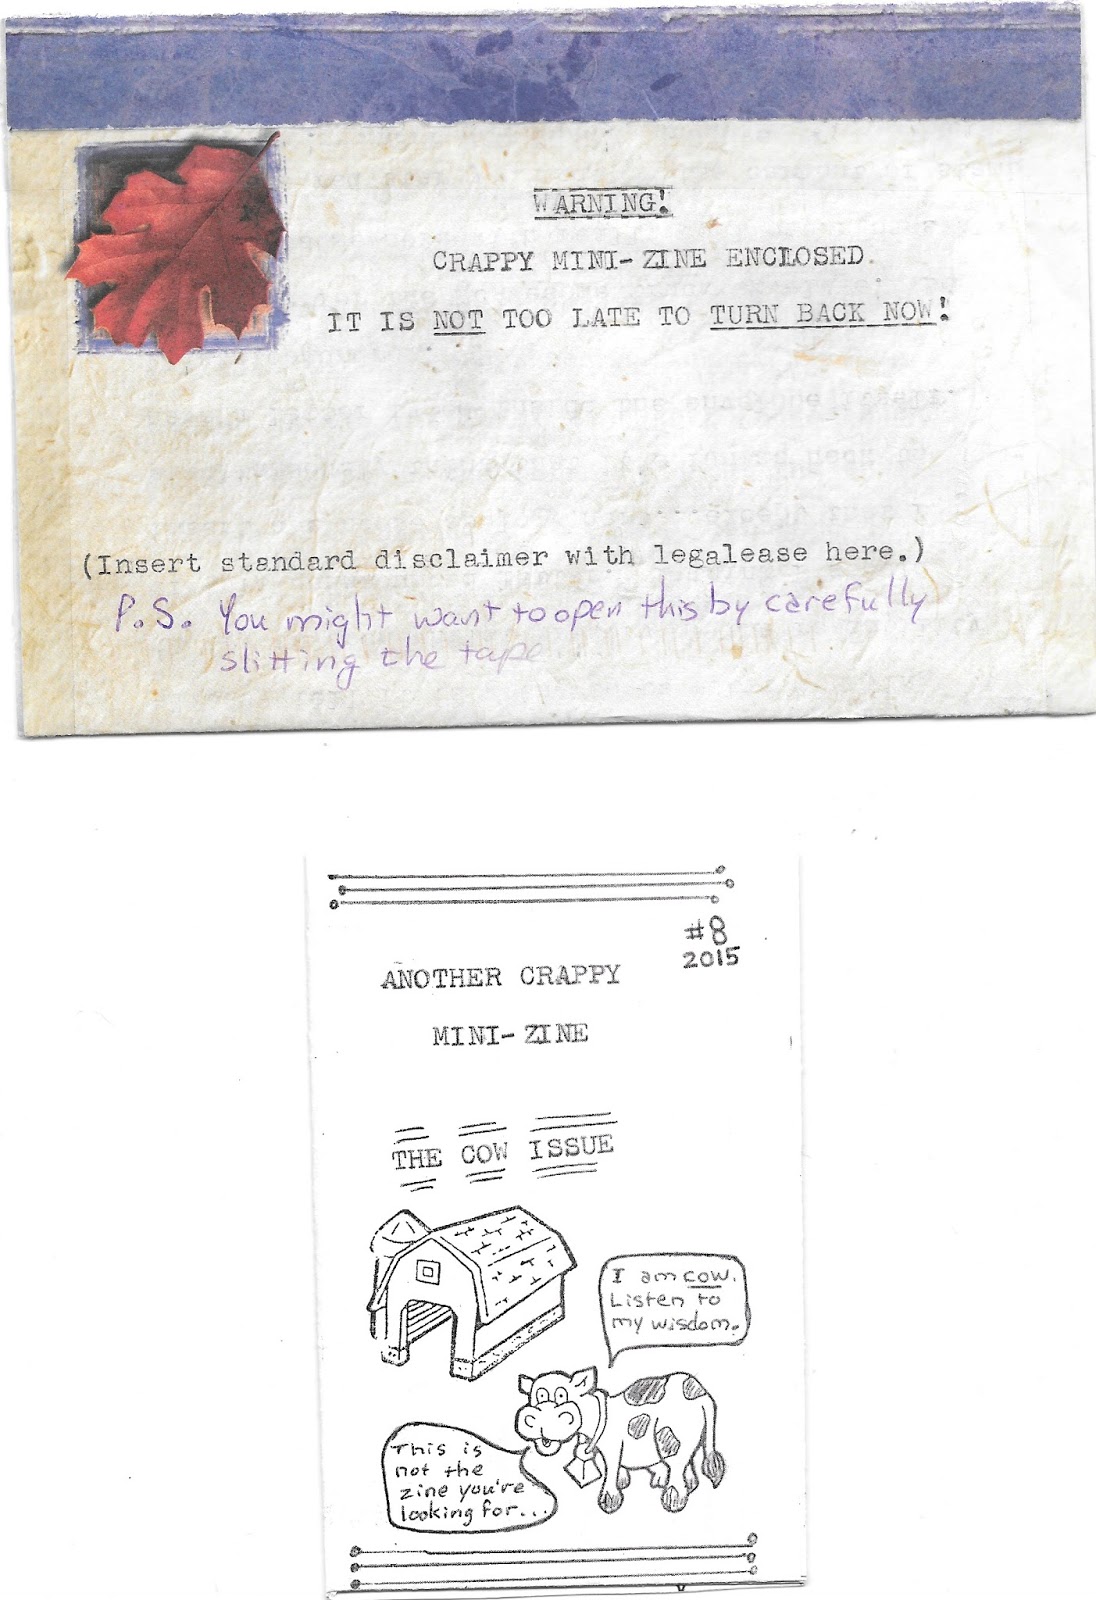 WARNING!
CRAPPY MINI-ZINE ENCLOSED.
IT IS NOT TOO LATE TO TURN BACK NOW!
(Insert standard disclaimer with legalease here.)
P.S. You might want to open this by carefully
slitting the tape.
#8
2015
ANOTHER CRAPPY
MINI-ZINE
THE COW ISSUE
I am cow.
Listen to
my wisdom.
This is
not the
zine you're
looking for...